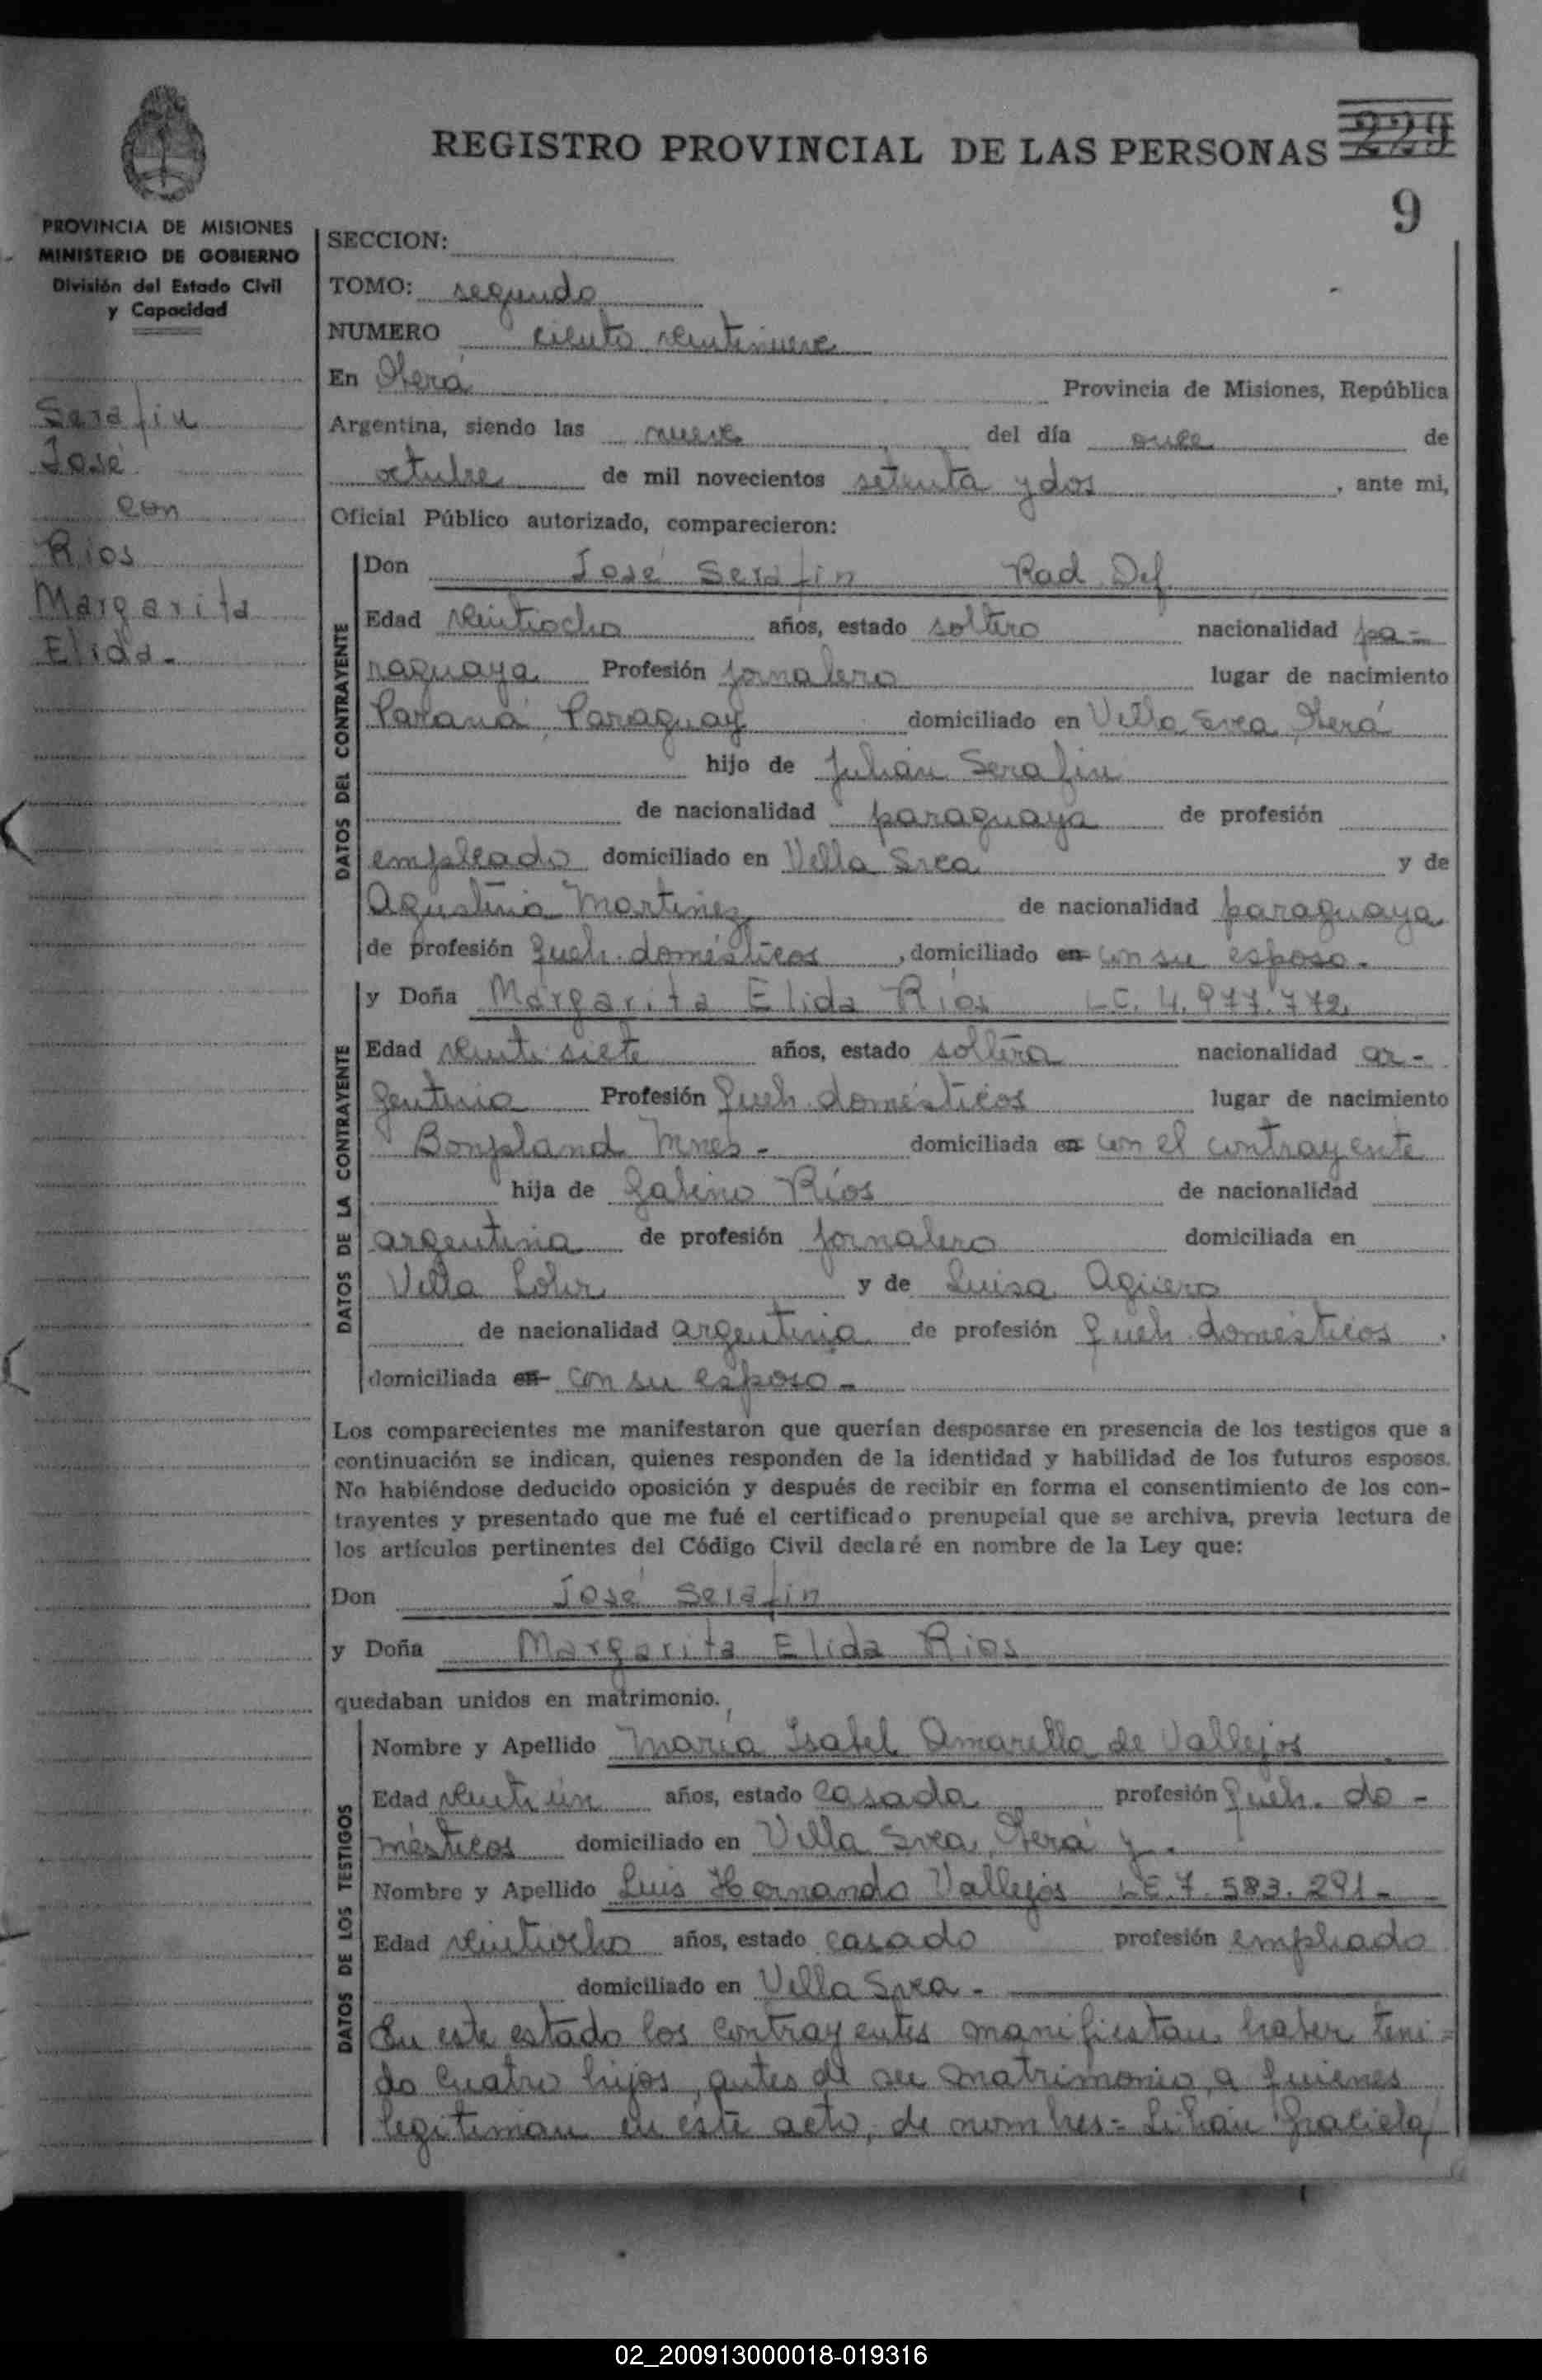 REGISTRO PROVINCIAL DE LAS PERSONAS 229
9
PROVINCIA DE MISIONES
MINISTERIO DE GOBIERNO
División del Estado Civil
y Capacidad
Serafin
José
con
Ríos
Margarita
Elida-
SECCION:
TOMO: segundo
NUMERO ciento veintinueve
En Oberá Provincia de Misiones, República
Argentina, siendo las nueve del día once de
octubre de mil novecientos setenta y dos, ante mi,
Oficial Público autorizado, comparecieron:
DATOS DEL CONTRAYENTE
Don José Serafin Rad. Def.
Edad veintiocho años, estado soltero nacionalidad pa-
raguaya Profesión jornalero lugar de nacimiento
Paraná, Paraguay domiciliado en Villa Svea, Oberá
hijo de Julián Serafin
de nacionalidad paraguaya de profesión
empleado domiciliado en Villa Svea y de
Agustina Martinez de nacionalidad paraguaya
de profesión queh. domésticos, domiciliado en con su esposo-
DATOS DE LA CONTRAYENTE
y Doña Margarita Elida Ríos LC. 4.977.772
Edad veintisiete años, estado soltera nacionalidad ar-
gentina Profesión queh. domésticos lugar de nacimiento
Bonpland Mnes- domiciliada en con el contrayente
hija de Gabino Ríos de nacionalidad
argentina de profesión jornalero domiciliada en
Villa Lohr y de Luisa Agüero
de nacionalidad argentina de profesión queh. domésticos.
domiciliada en con su esposo-
Los comparecientes me manifestaron que querían desposarse en presencia de los testigos que a
continuación se indican, quienes responden de la identidad y habilidad de los futuros esposos.
No habiéndose deducido oposición y después de recibir en forma el consentimiento de los con-
trayentes y presentado que me fué el certificado prenupcial que se archiva, previa lectura de
los artículos pertinentes del Código Civil declaré en nombre de la Ley que:
Don José Serafin
y Doña Margarita Elida Rios
quedaban unidos en matrimonio.
DATOS DE LOS TESTIGOS
Nombre y Apellido María Isabel Amarilla de Vallejos
Edad veintiún años, estado casada profesión queh. do-
mésticos domiciliado en Villa Svea, Oberá y.
Nombre y Apellido Luis Hernando Vallejos LE.7.583.291-
Edad veintiocho años, estado casado profesión empleado
domiciliado en Villa Svea-
En este estado los contrayentes manifiestan haber teni=
do cuatro hijos, antes de su matrimonio a quienes
legitiman en éste acto, de nombres= Lilian Graciela,
02_200913000018-019316